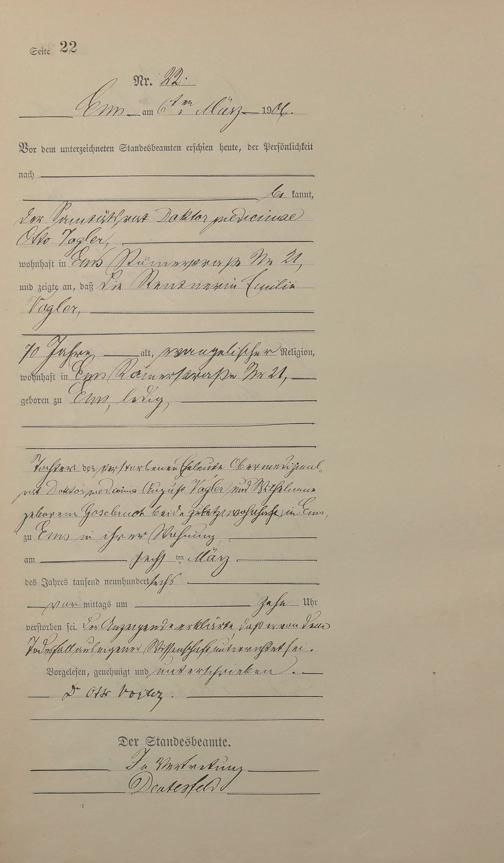 Seite 22
Nr. 22.
Ems am 6ten März 1906.
Vor dem unterzeichneten Standesbeamten erschien heute, der Persönlichkeit
nach
be kannt,
der Sanitätsrat Doktor medicinae
Otto Vogler,
wohnhaft in Ems Römerstraße Nr 21,
und zeigte an, daß die Rentnerin Emilie
Vogler,
70 Jahre alt, evangelischer Religion,
wohnhaft in Ems Römerstraße Nr 21,
geboren zu Ems, ledig,
Tochter der verstorbenen Eheleute Obermedizinal
rat Doktor medicinae August Vogler und Wilhelmine
geborene beide zuletzt wohnhaft in Ems
zu Ems in ihrer Wohnung
am sechsten März
des Jahres tausend neunhundert sechs
vor mittags um zehn Uhr
verstorben sei. Der Anzeigende erklärte daß er von dem
Todesfall aus eigener Wissenschaft unterrichtet sei.
Vorgelesen, genehmigt und unterschrieben.
Dr Otto Vogler.
Der Standesbeamte.
In Vertretung